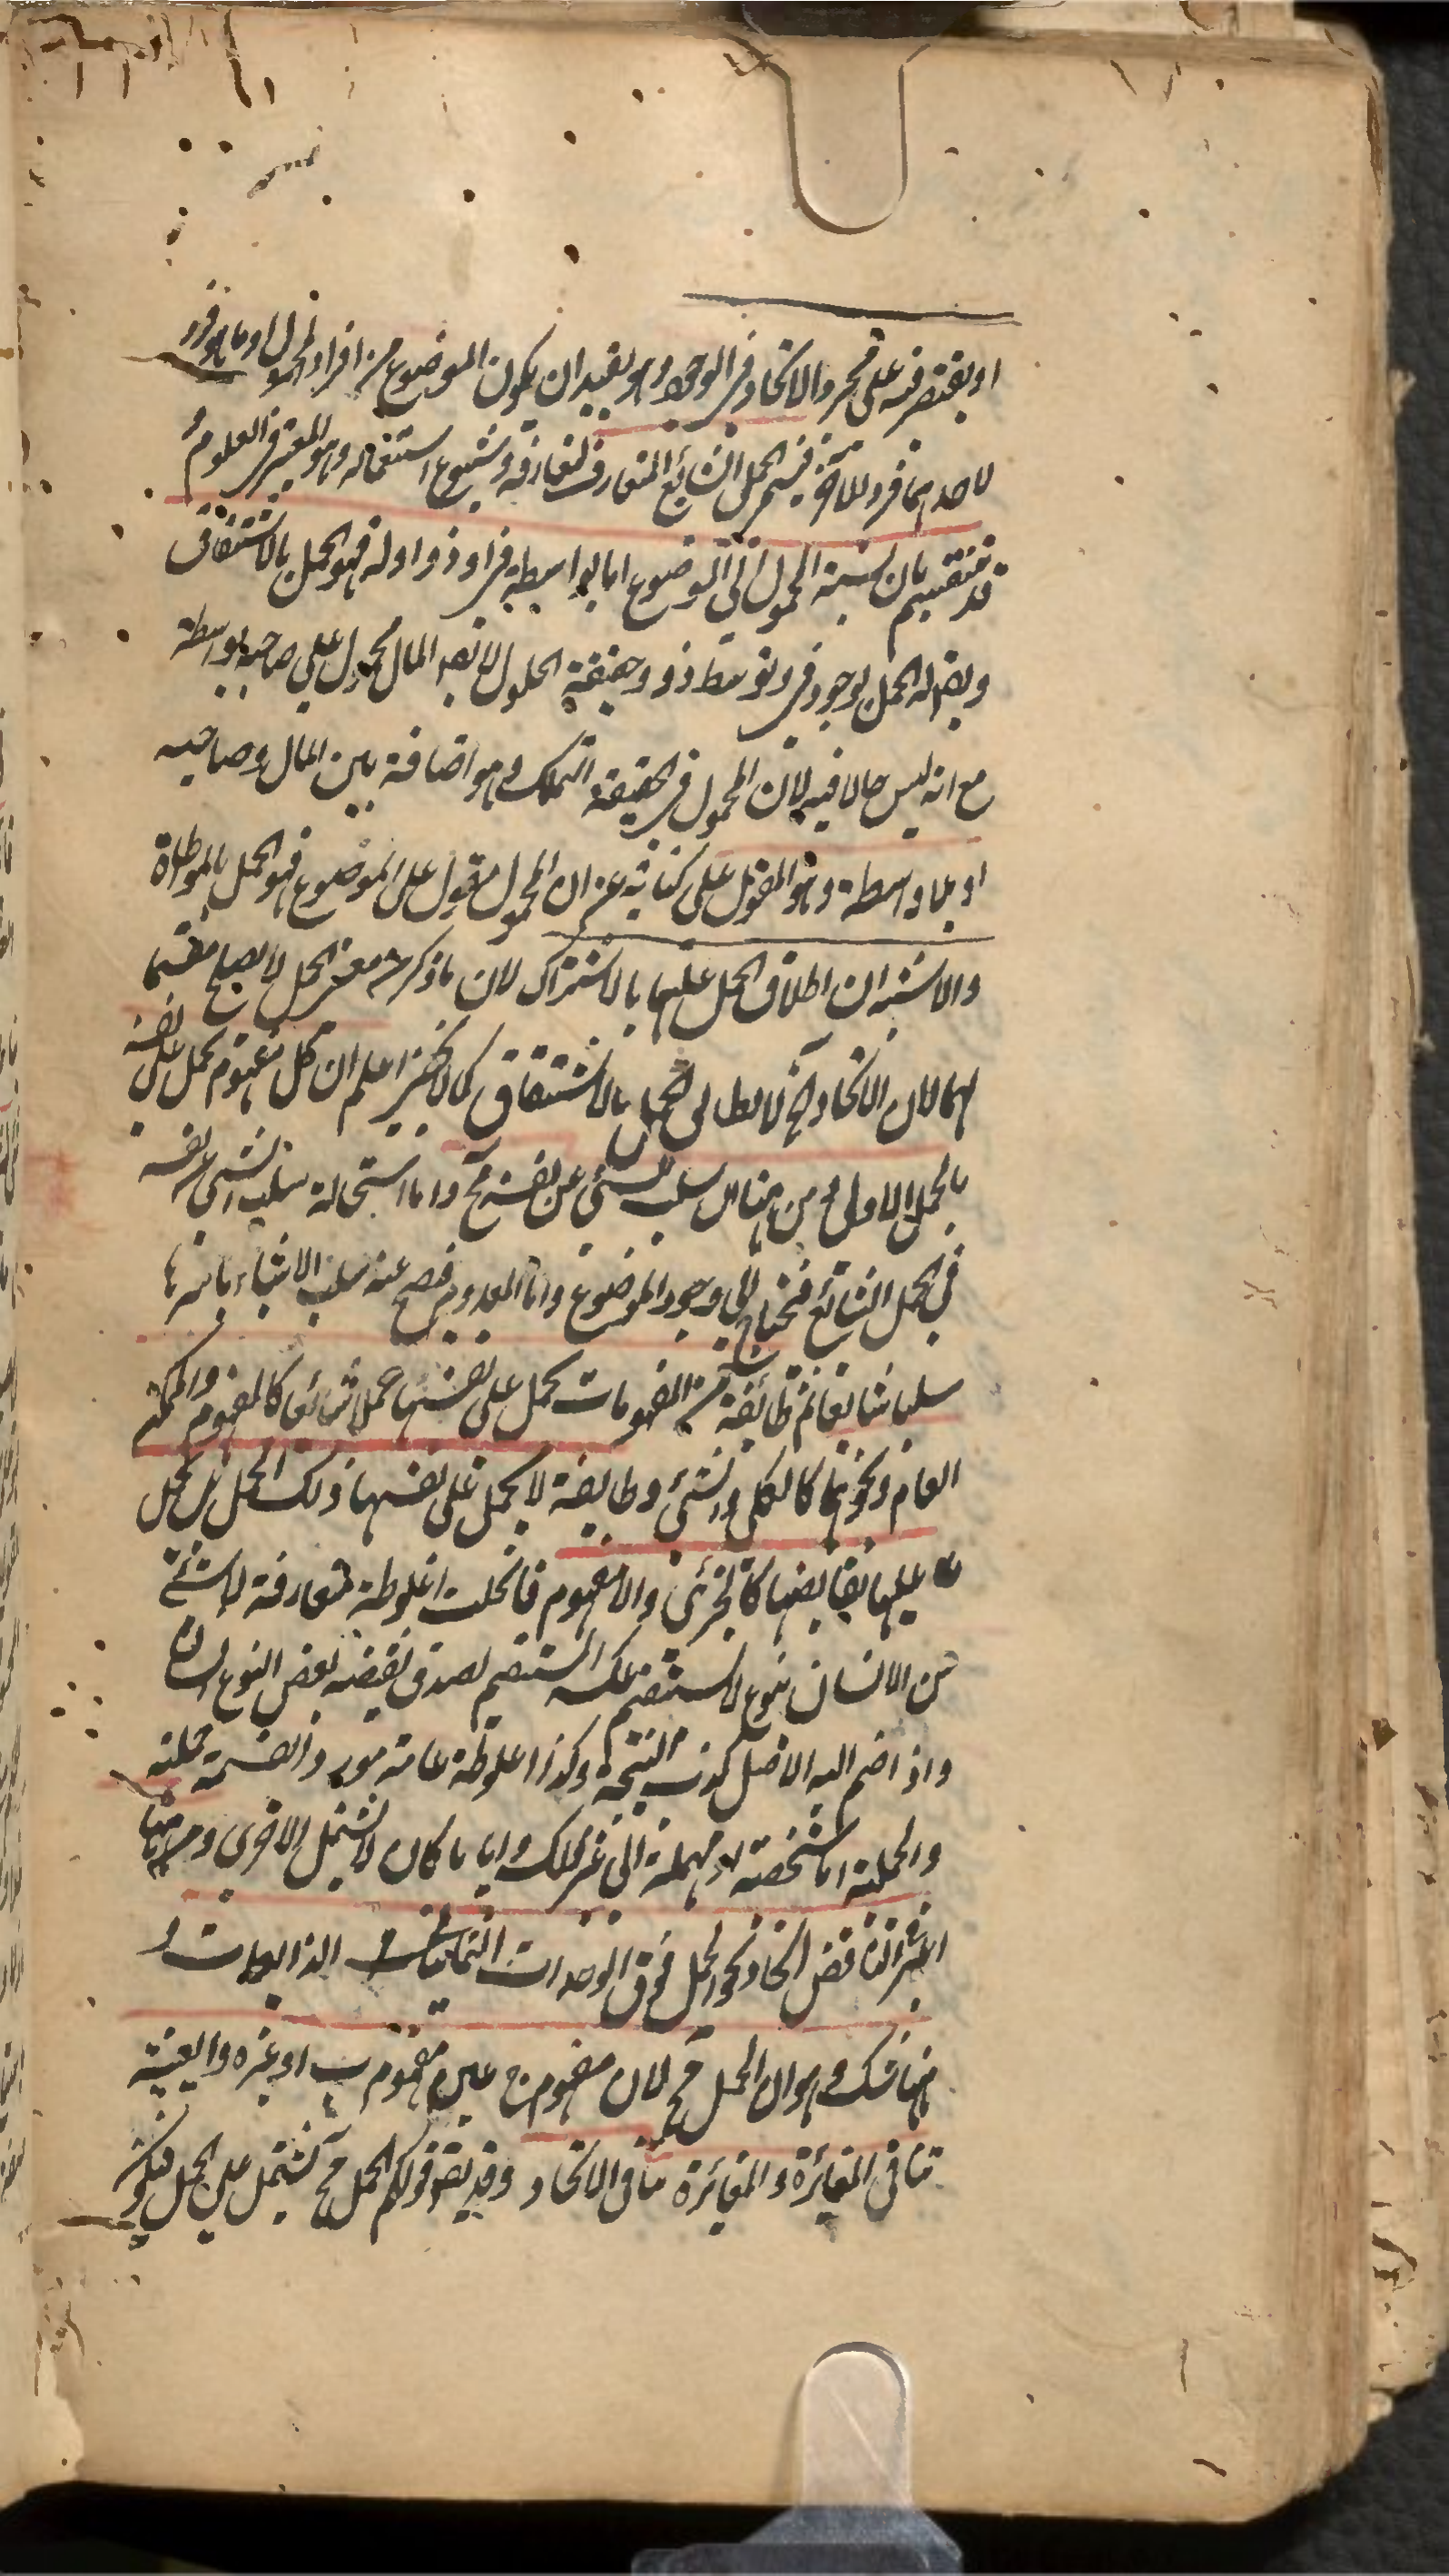 او يقتصر فيه على مجرد الاتحاد في الوجود وهو يفيد ان يكون الموضوع من افراد المحمول او ما هو فرد
لاحدهما فرد للاخر فيسمى الحمل الشائع المتعارف لتعارفه وشيوع استعماله وهو المعتبر في العلوم
قد ينقسم بان نسبة المحمول الى الموضوع اما بواسطة في او ذو او له فهو الحمل بالاشتقاق
الحمل بوجود في وتوسط ذو وحقيقة الحلول المال محمول على صاحبه بواسطة
مع انه ليس حالا فيه لان المحمول في الحقيقة التملك وهو اضافة بين المال وصاحبه
او بلا واسطة وهو المقول على كناية عن ان المحمول مقول على الموضوع فهو الحمل بالمواطاة
والاشبه ان اطلاق الحمل عليهما بالاشتراك لان ما ذكر من معنى الحمل لا يصلح مقسما
لهما لان الاتحاد بالاشتقاق كما لا يخفى اعلم ان كل مفهوم يحمل على نفسه
بالحمل الاولى ومن هنا سلب الشئ عن نفسه مح واما استحالة سلب الشئ عن نفسه
في الحمل الشائع فتحتاج الى وجود الموضوع واما المعدوم فيصح عنه سلب الاشياء باسرها
سلبا شائعا ثم طائفة من المفهومات يحمل على نفسها حملا شائعا كالمفهوم والممكن
العام ونحوهما كالكلى والشئ وطايفة لا يحمل على نفسها ذلك الحمل بل يحمل
عليها نقايضها كالجزئى واللامفهوم فانحلت اغلوطة متعارفة
من الانسان نوع لا يستقيم عكسه المستقيم لصدق نقيضه بعض النوع انسان
واذا ضم اليه الاصل كذب النتيجة وكذا اغلوطة عامة القسمة حملية
والحملية اما شخصية او مهملة الى غير ذلك وايا ما كان لا يشمل الاخرى ومن ههنا
اعتبر في التناقض اتحاد نحو الحمل فوق الوحدات الثمانية
ههنا شك وهو ان الحمل مح لان مفهوم ج عين مفهوم ب او غيره والعينية
تنافى المغائرة والمغائرة تنافى الاتحاد وقد يقرر قولكم الحمل مح يشتمل على الحمل فيكون